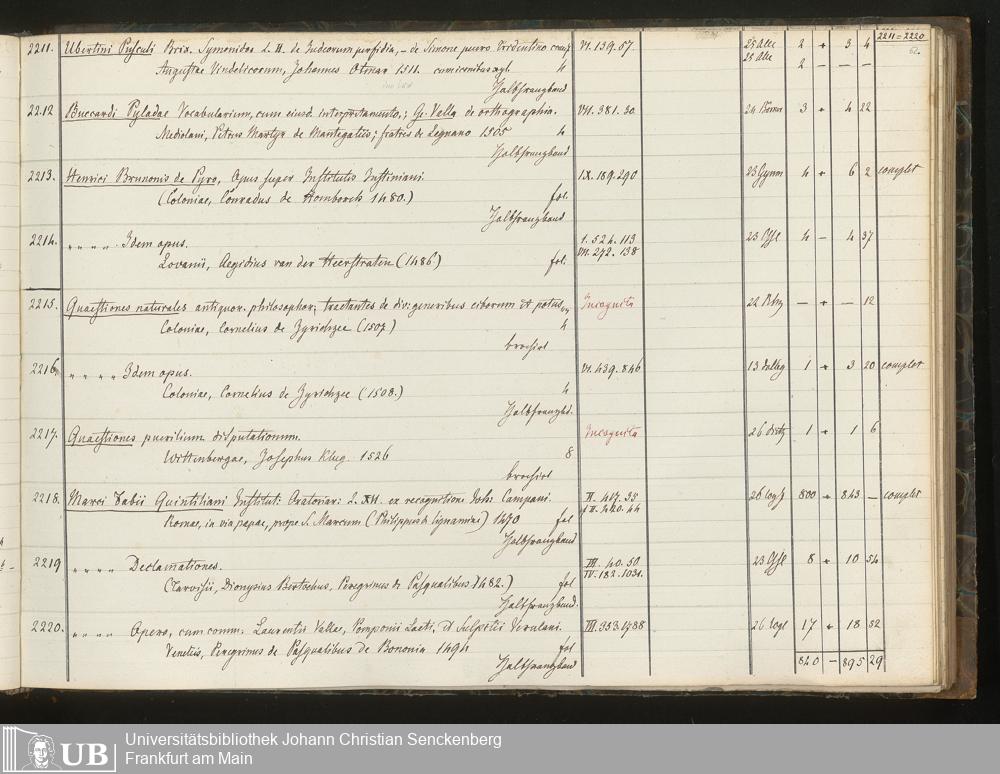 2211 = 2220
52.
2211. Ubertini Pusculi Brix. Symonidos L. II. de Judeorum perfidia, – de Simone puero Tridentino
VI. 139. 57. 25 2 + 3 4
Augustae Vindelicorum, Johannes Otmar 1511. cum iconibus xyl. 4
25 2 – – –
Halbfranzband
2212 Buccardi Pyladae Vocabularium, cum eiusd. interpretamento; G. Valla de orthographia. VII. 381. 30. 24 3 + 4 22
Mediolani, Petrus Martyr de Mantegatiis; fratres de Legnano 1505 4
Halbfranzband
2213. Henrici Brunonis de Pyro, Opus super Institutis Justiniani. IX. 189. 290 23 4 + 6 2 complet
(Coloniae, Conradus de Homborch 1480.) fol.
Halbfranzband
2214. " " " " Idem opus. I. 524. 113 23 4 – 4 37
VII. 242. 138
Lovanii, Aegidius van der Heerstraten (1486) fol.
2215. Quaestiones naturales antiquor. philosophor; tractantes de div: generibus ciborum et potus, Incognita 22 – + – 12
Coloniae, Cornelius de Zyrichzee (1507.) 4
brochirt
2216. " " " " Idem opus. VI. 439. 846 13 1 + 3 20 complet
Coloniae, Cornelius de Zyrichzee (1508.) 4
Halbfranzbd.
2217. Quaestiones puerilium disputationum. Incognita 26 1 + 1 6
Wittenbergae, Josephus Klug 1526 8
brochirt
2218. Marci Fabii Quintiliani Institut: Oratoriar: L. XII. ex recognitione Joh: Campani. II. 417. 35 26 800 + 843 – complet
Romae, in via papae, prope S. Marcum (Philippus de Lignamine) 1470 fol
Halbfranzband
2219 " " " " Declamationes. III. 40. 50 23 8 + 10 54
IV. 182. 1031.
Tarvisii, Dionysius Bertochus, Peregrinus de Pasqualibus 1482.) fol
Halbfranzband.
2220. " " " " Opera, cum comm. Laurentii Vallae, Pomponii Laeti, et Sulpitii Verulani. III. 353. 1788 26 17 + 18 52
Venetiis, Peregrinus de Pasqualibus de Bononia 1494 fol
Halbfranzband
840 – 895 29
UB Universitätsbibliothek Johann Christian Senckenberg
Frankfurt am Main